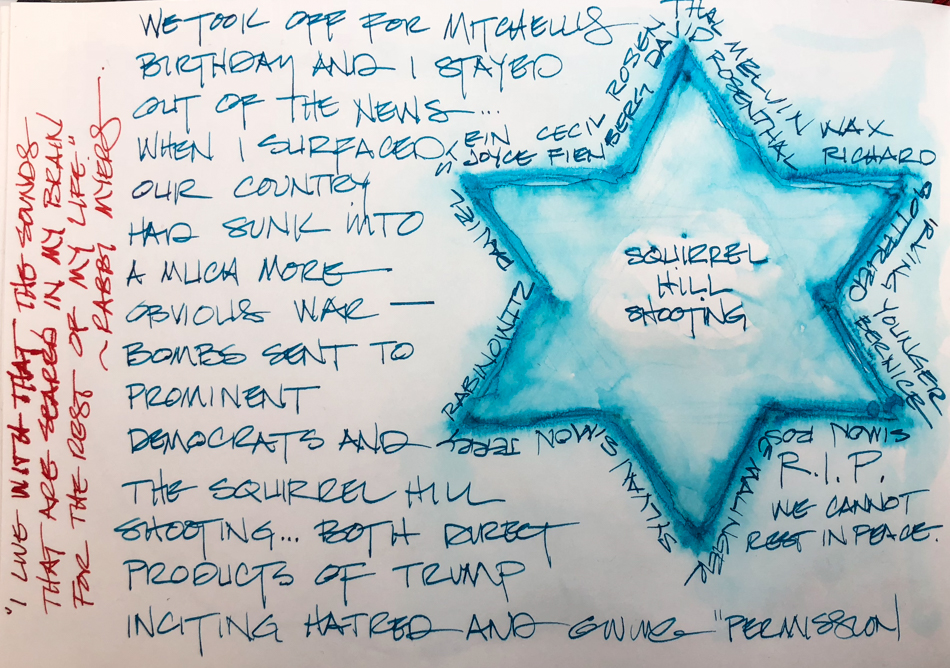 WE TOOK OFF FOR MITCHELL'S
BIRTHDAY AND I STAYED
OUT OF THE NEWS...
WHEN I SURFACED
OUR COUNTRY
HAD SUNK INTO
A MUCH MORE
OBVIOUS WAR —
BOMBS SENT TO
PROMINENT
DEMOCRATS AND
THE SQUIRREL HILL
SHOOTING... BOTH DIRECT
PRODUCTS OF TRUMP
INCITING HATRED AND GIVING "PERMISSION
"I LIVE WITH THAT THE SOUNDS
THAT ARE SEARED IN MY BRAIN
FOR THE REST OF MY LIFE."
~ RABBI MYERS
DANIEL
STEIN CECIL
ROSEN
THAL
JOYCE FIEN
BERG DAV
ID ROSENTHAL
MELVIN
WAX
RICHARD
GOTTFRIED
IRVING YOUNGER
BERNICE
SIMON ROSE
MALLINGER
SYLVAN
SIMON JERRY
RABINOWITZ
SQUIRREL
HILL
SHOOTING
R.I.P.
WE CANNOT
REST IN PEACE.